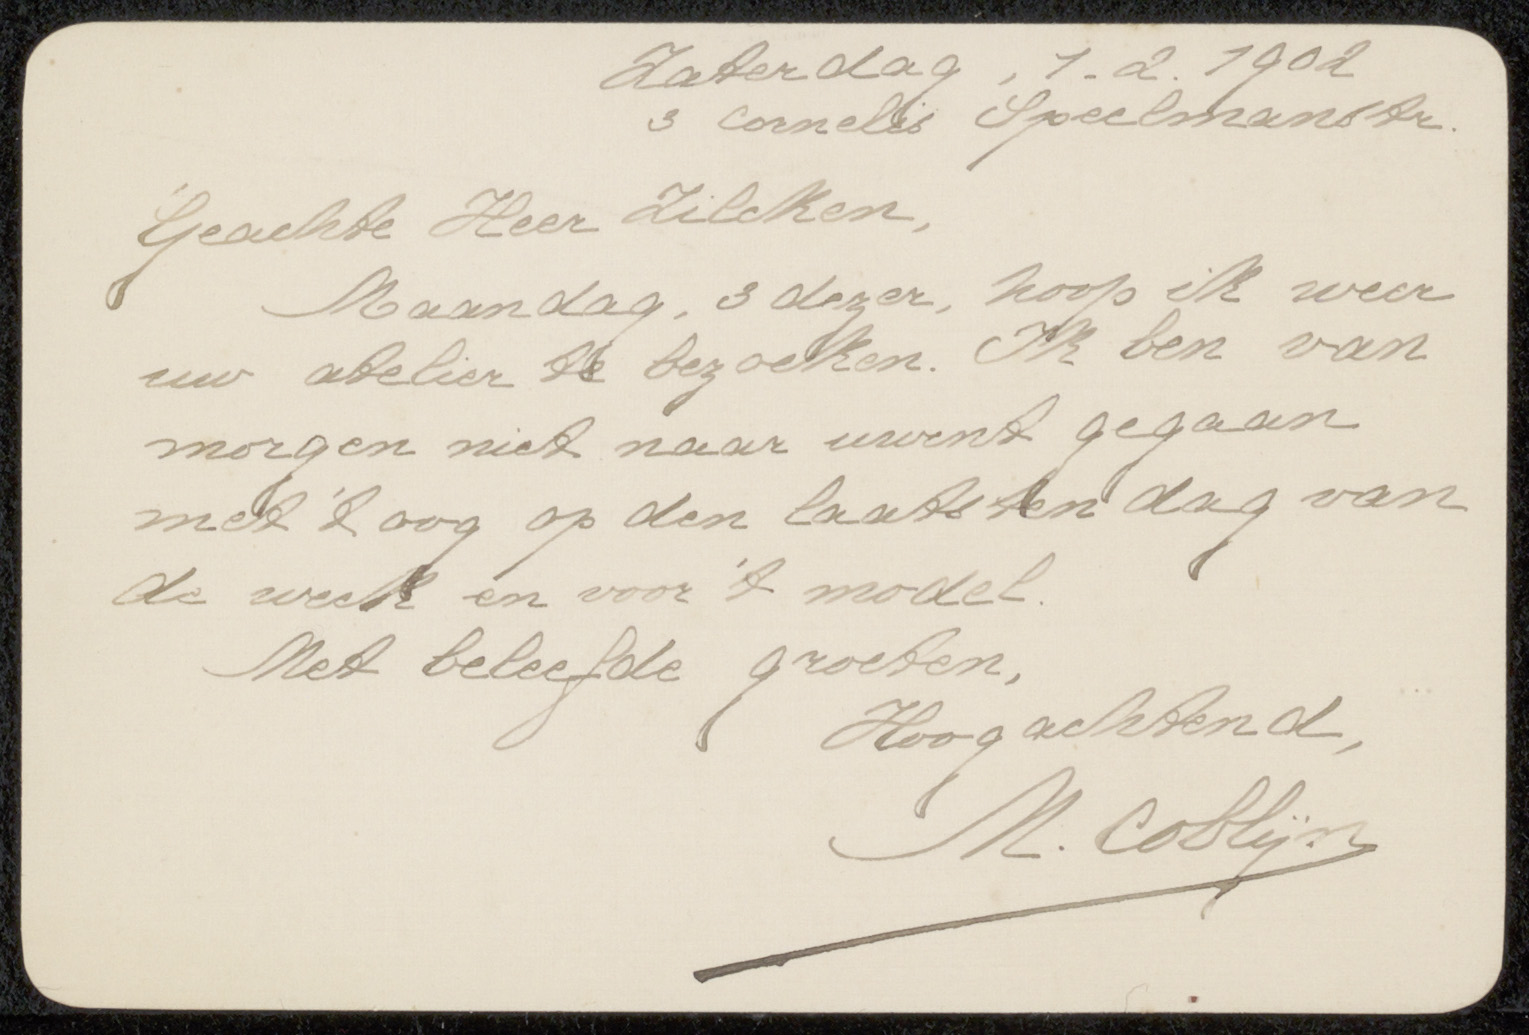 Zaterdag, 1-2.1902
3 Cornelis Speelmanstr.
Geachte Heer Zilcken,
Maandag, 3 dezer, hoop ik weer
uw atelier te bezoeken. Ik ben van
morgen niet naar uwent gegaan
met 't oog op den laatsten dag van
de week en voor 't model.
Met beleefde groeten,
Hoogachtend,
M. Coblijn